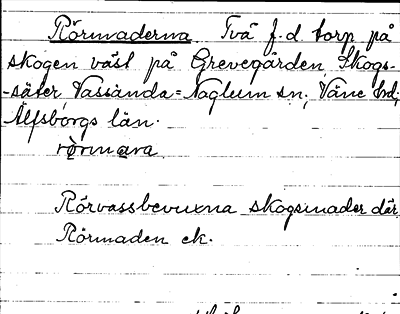 Rörmaderna. Två f.d. torp på
skogen väst på Grevegården, Skogs-
-säter, Vassända-Naglum sn, Väne hd,
Älfsborgs län.
rörmara
Rörvassbevuxna skogsmader där.
Rörmaden ek.